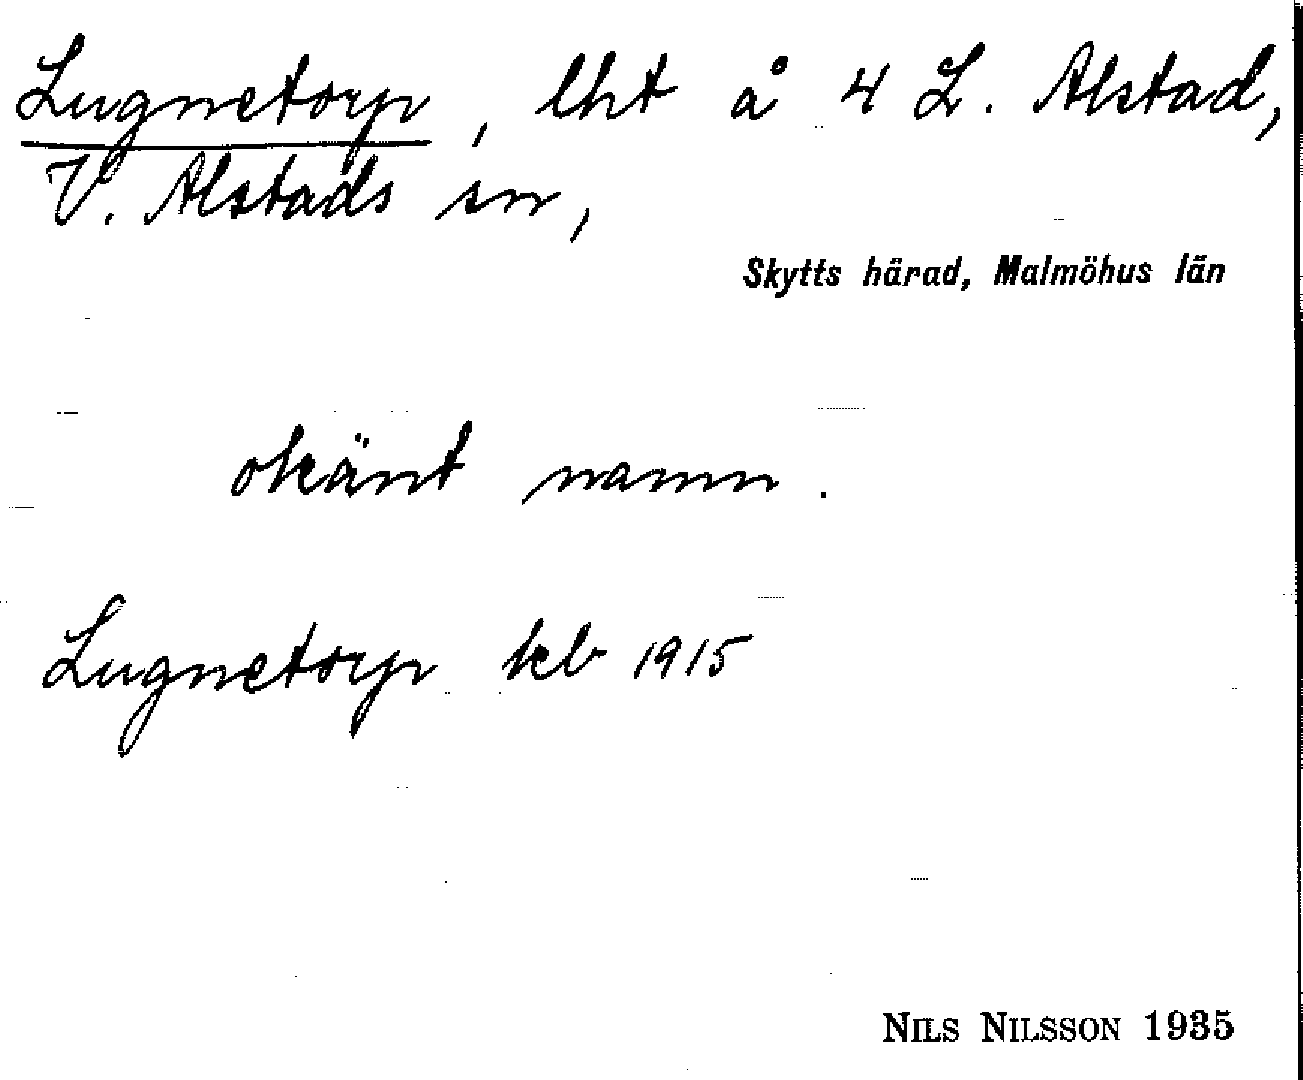 Lugnetorp, lht å 4 L. Alstad,
V. Alstads sn,
Skytts härad, Malmöhus län
okänt namn.
Lugnetorp kb 1915
NILS NILSSON 1935